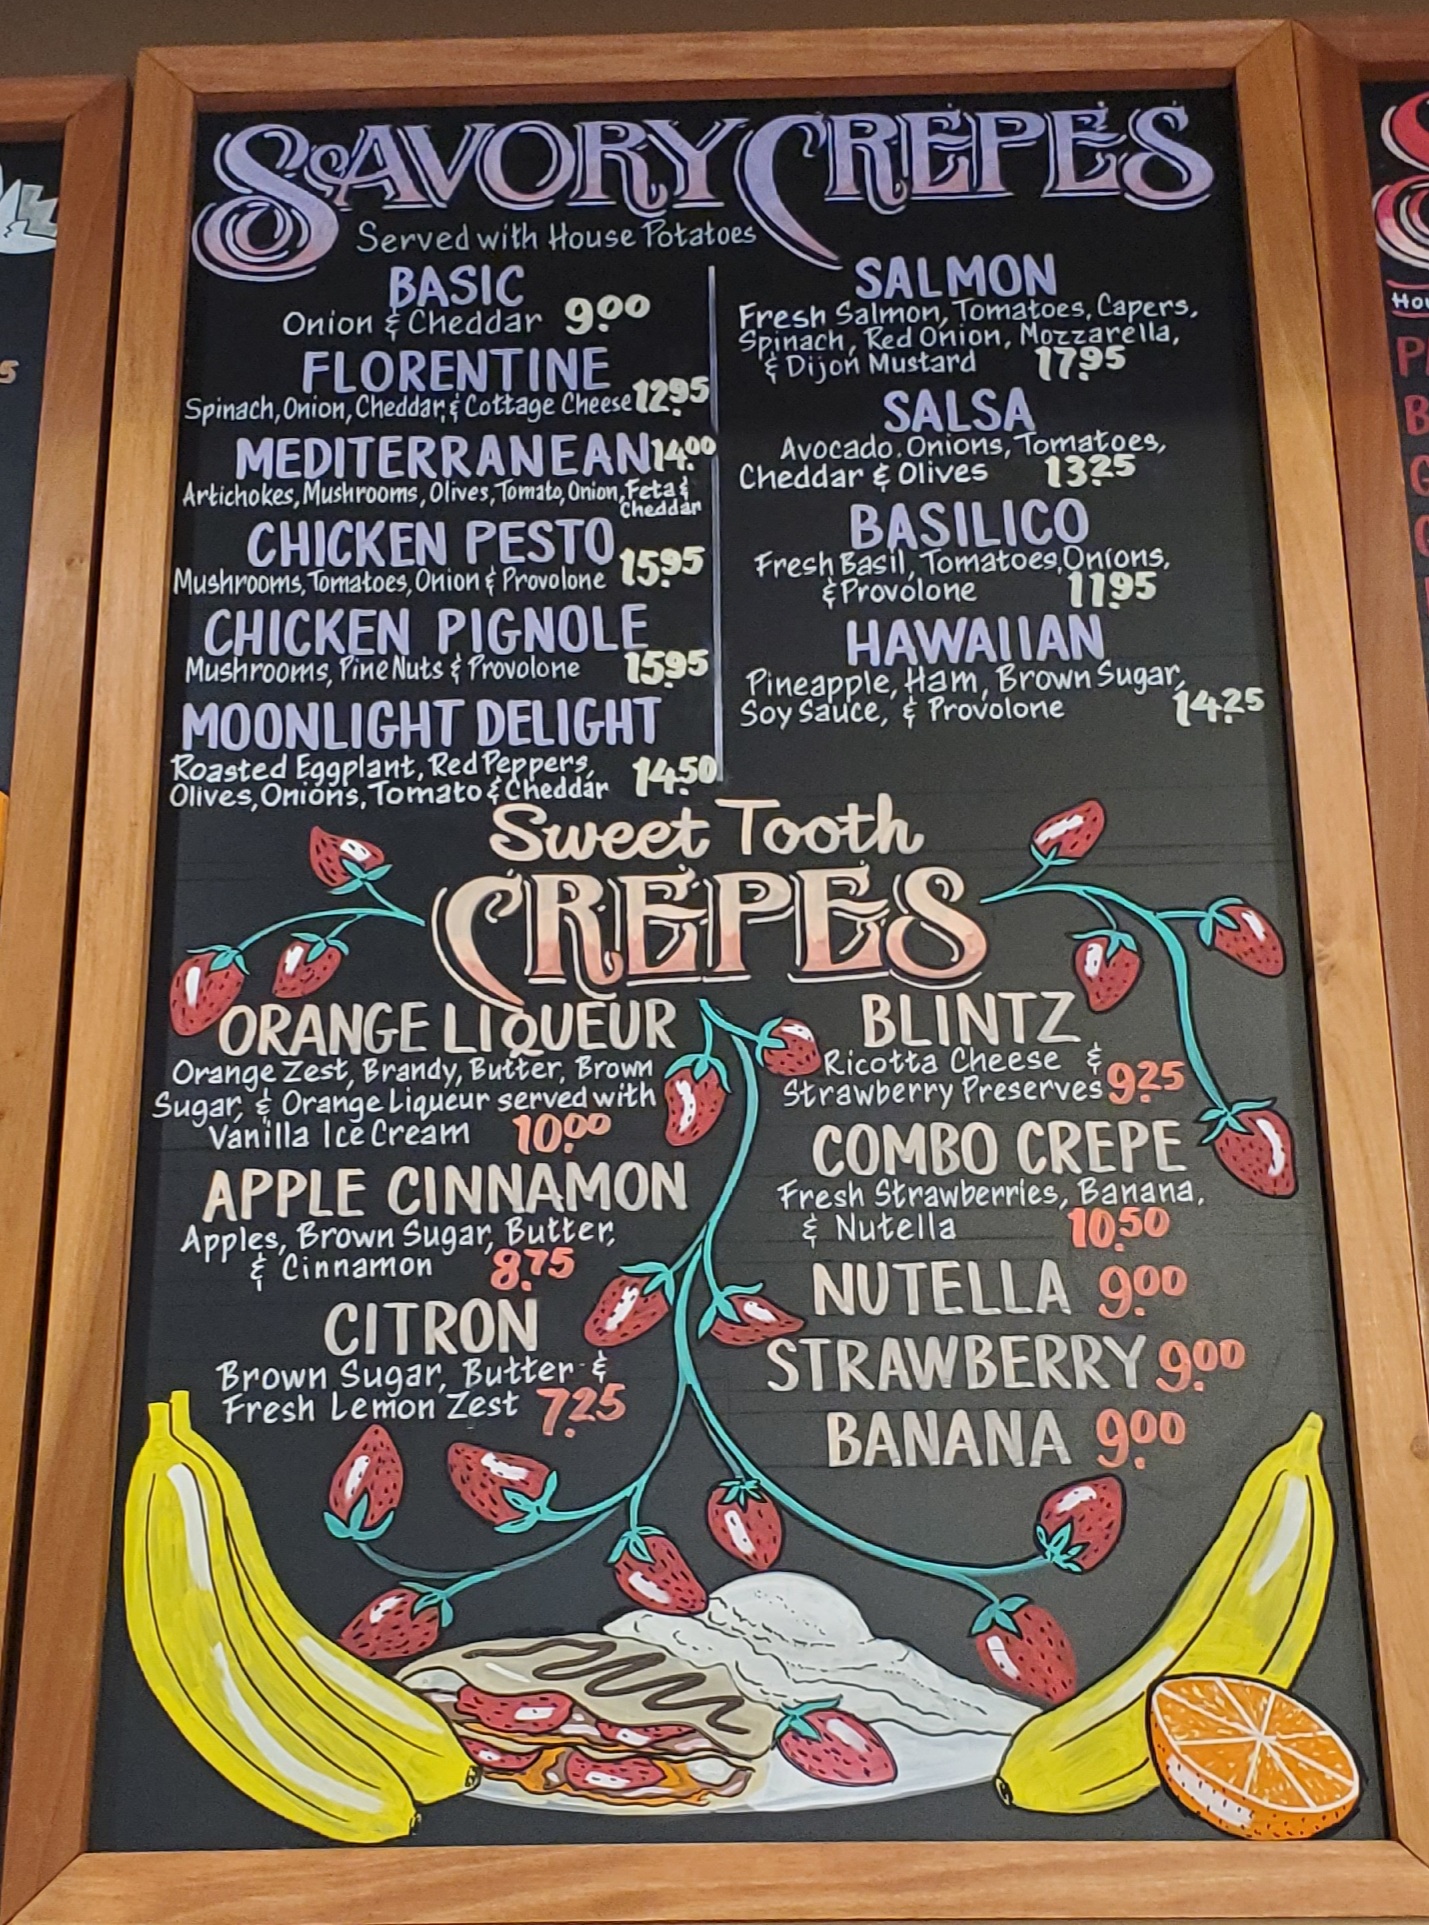 SAVORY CREPES
Served with House Potatoes
BASIC
Onion & Cheddar 9.00
FLORENTINE
Spinach, Onion, Cheddar, & Cottage Cheese 12.95
MEDITERRANEAN 14.00
Artichokes, Mushrooms, Olives, Tomato, Onion, Feta &
Cheddar
CHICKEN PESTO
Mushrooms, Tomatoes, Onion & Provolone 15.95
CHICKEN PIGNOLE
Mushrooms, Pine Nuts & Provolone 15.95
MOONLIGHT DELIGHT
Roasted Eggplant, Red Peppers,
Olives, Onions, Tomato & Cheddar 14.50
SALMON
Fresh Salmon, Tomatoes, Capers,
Spinach, Red Onion, Mozzarella,
& Dijon Mustard 17.95
SALSA
Avocado, Onions, Tomatoes,
Cheddar & Olives 13.25
BASILICO
Fresh Basil, Tomatoes, Onions,
& Provolone 11.95
HAWAIIAN
Pineapple, Ham, Brown Sugar,
Soy Sauce, & Provolone 14.25
Sweet Tooth
CREPES
ORANGE LIQUEUR
Orange Zest, Brandy, Butter, Brown
Sugar, & Orange Liqueur served with
Vanilla Ice Cream 10.00
APPLE CINNAMON
Apples, Brown Sugar, Butter,
& Cinnamon 8.75
CITRON
Brown Sugar, Butter &
Fresh Lemon Zest 7.25
BLINTZ
Ricotta Cheese &
Strawberry Preserves 9.25
COMBO CREPE
Fresh Strawberries, Banana,
& Nutella 10.50
NUTELLA 9.00
STRAWBERRY 9.00
BANANA 9.00